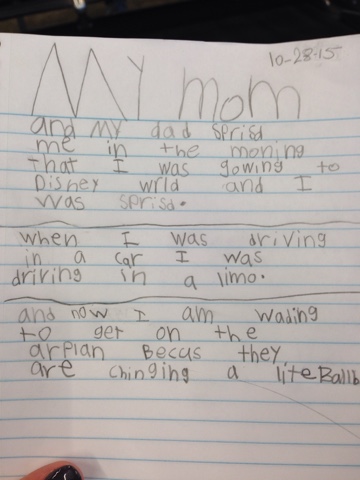 10-28-15
My mom
and my dad sprisd
me in the moning
that I was gowing to
Disney wrld and I
was sprisd.
when I was driving
in a car I was
driring in a limo.
and now I am wading
to get on the
arplan Becus they
are chinging a liteBallb